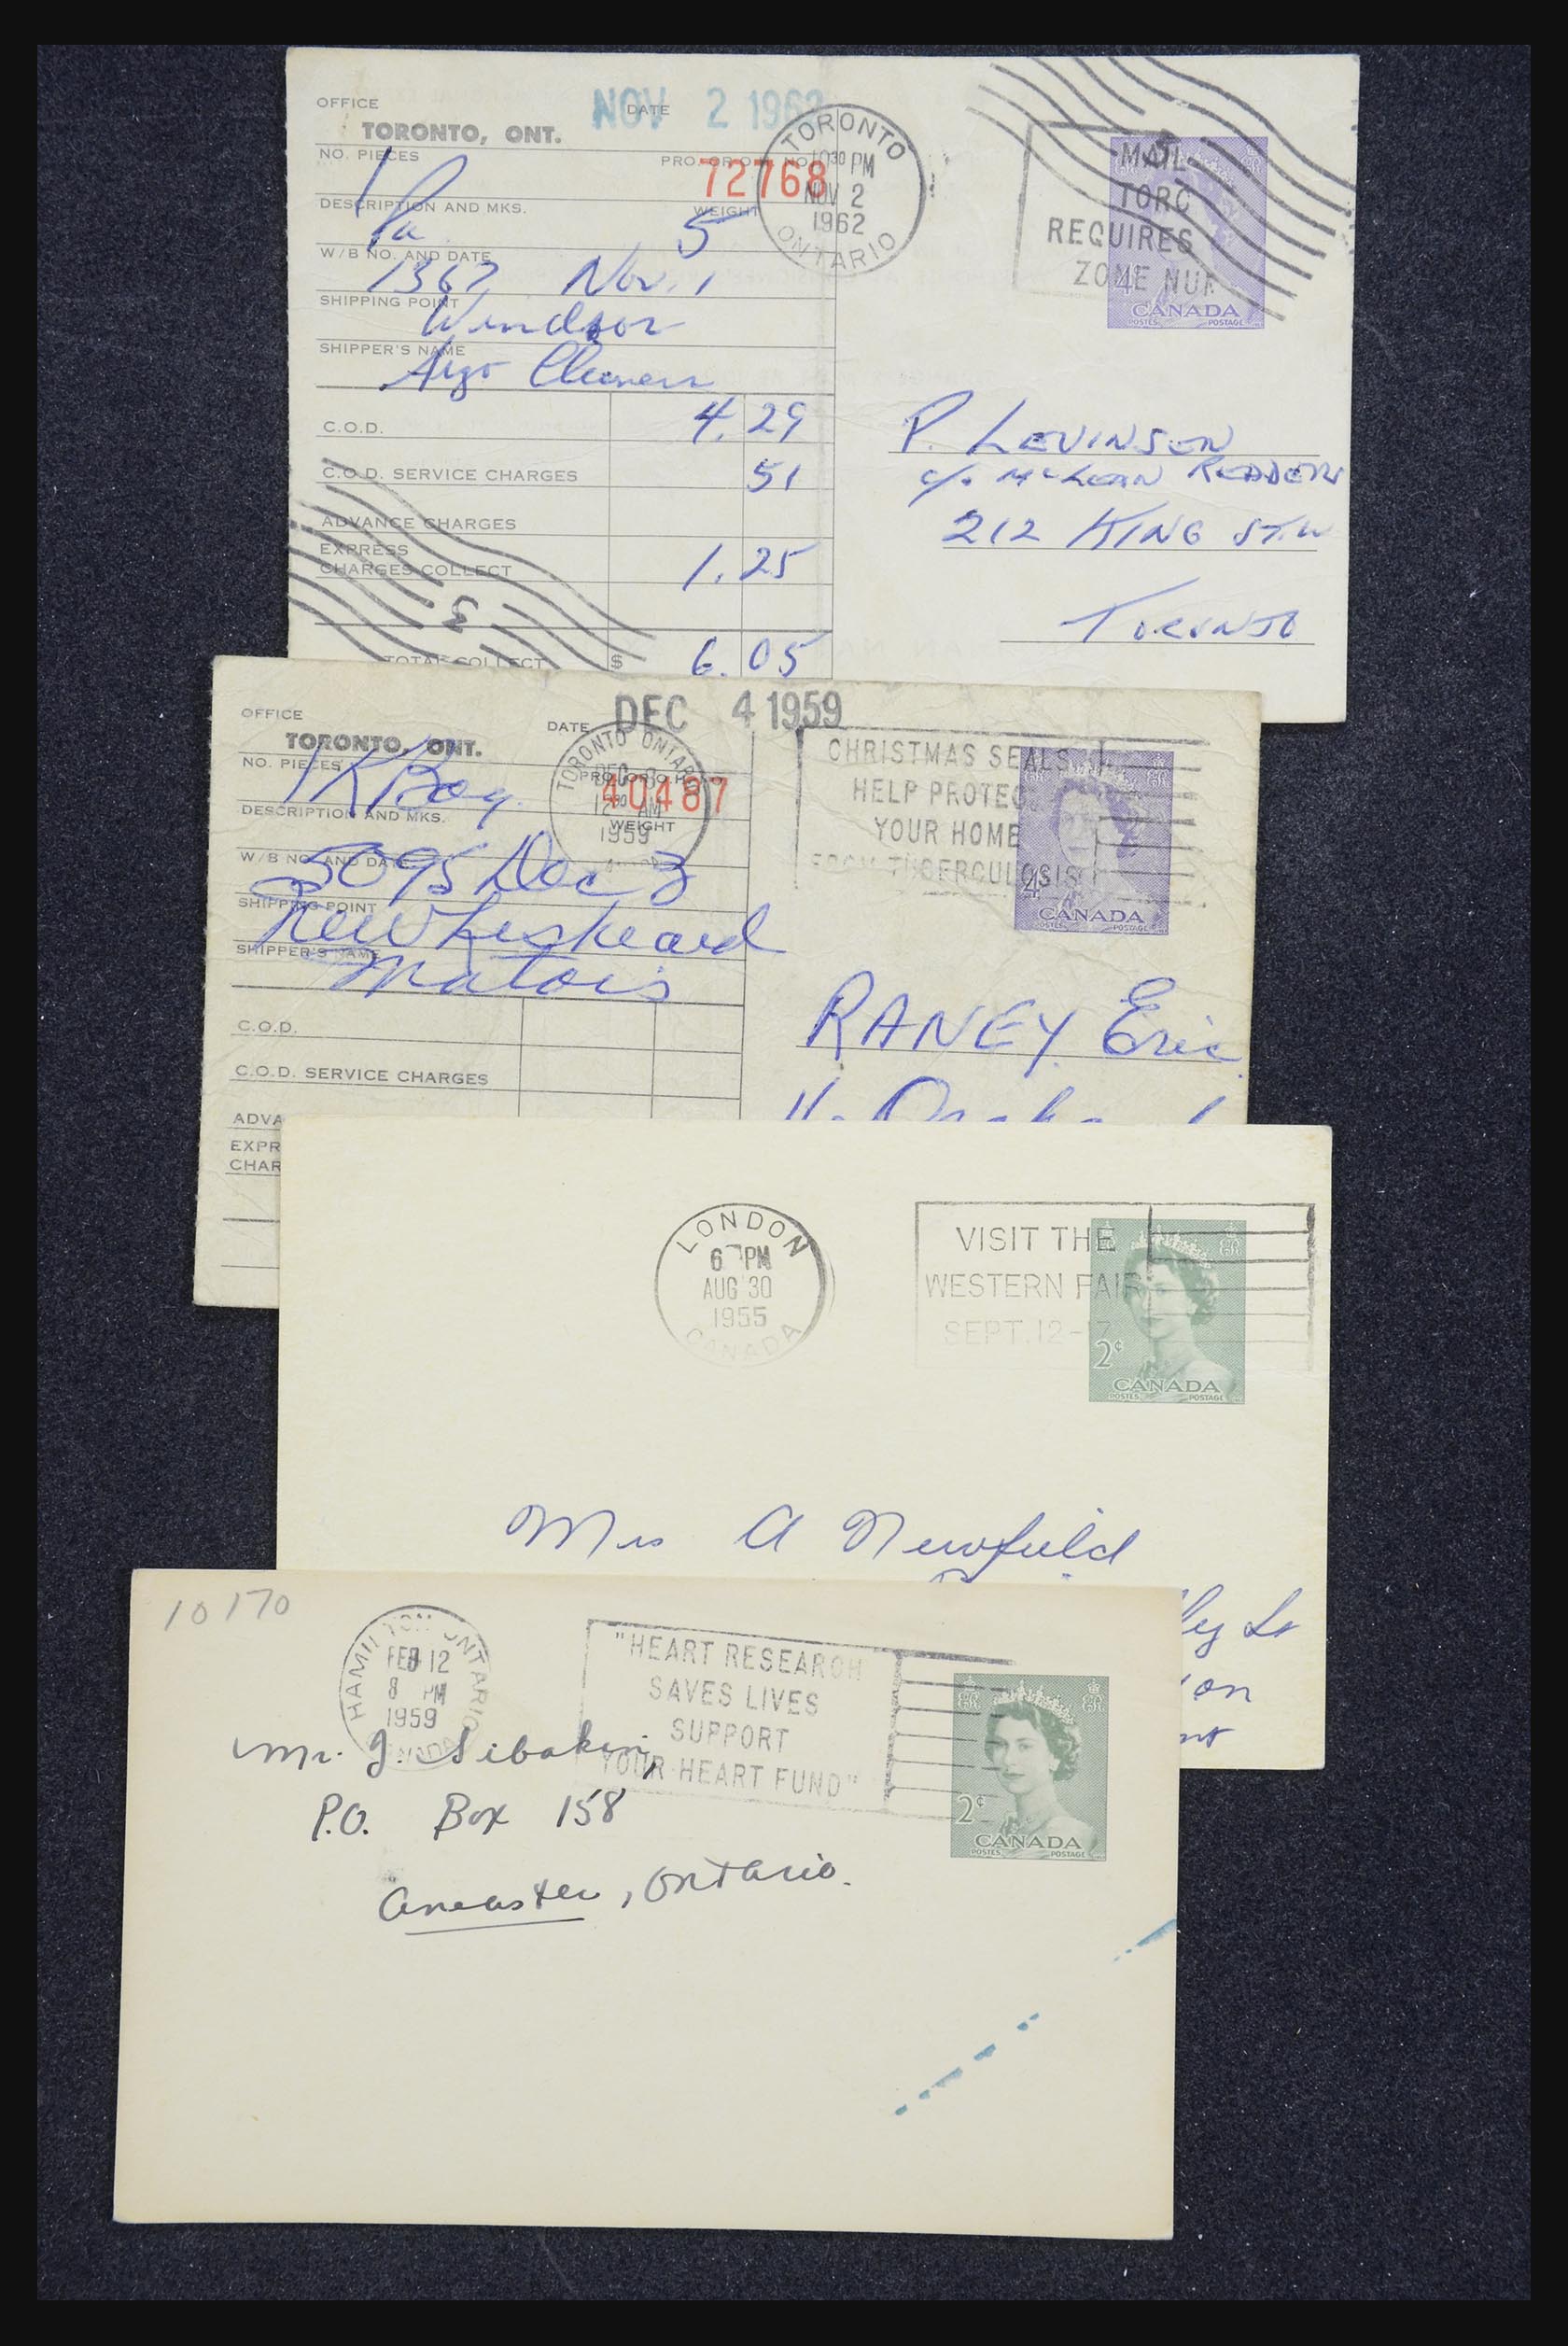 OFFICE DATE NOV 2 1962
TORONTO, ONT.
NO. PIECES PRO. OR O H NO. 72768
1 Pa
DESCRIPTION AND MKS. WEIGHT
5
W/B NO. AND DATE
1367 Nov. 1
SHIPPING POINT
Windsor
SHIPPER'S NAME
Argo Cleaners
C.O.D. 4.29
C.O.D. SERVICE CHARGES 51
ADVANCE CHARGES
EXPRESS
CHARGES COLLECT 1.25
3
TOTAL COLLECT $ 6.05
TORONTO
10 30 PM
NOV 2
1962
ONTARIO
MAIL
TORO
REQUIRES
ZONE NUM
5
4¢
CANADA
POSTES POSTAGE
P. LEVINSEN
c/o McLEAN READERS
212 KING ST. W
TORONTO
OFFICE DATE DEC 4 1959
TORONTO, ONT.
NO. PIECES 40487
1 K Bag
DESCRIPTION AND MKS. WEIGHT
W/B NO. AND DATE
5095 Dec 3
SHIPPING POINT
New Liskeard
SHIPPER'S NAME
C.O.D.
C.O.D. SERVICE CHARGES
ADVA
EXPR
CHAR
TORONTO ONTARIO
DEC
12 AM
1959
CHRISTMAS SEALS
HELP PROTEC
YOUR HOME
FROM TUBERCULOSIS
4¢
CANADA
POSTES POSTAGE
RANEY Eric
LONDON
6 PM
AUG 30
1955
CANADA
VISIT THE
WESTERN FAIR
SEPT. 12-17
2¢
CANADA
POSTES POSTAGE
Mrs A Newfield
ley St
on
nt
10170
HAMILTON ONTARIO
FEB 12
8 PM
1959
CANADA
"HEART RESEARCH
SAVES LIVES
SUPPORT
YOUR HEART FUND"
2¢
CANADA
POSTES POSTAGE
Mr. J. Sibakin,
P.O. Box 158
Ancaster, Ontario.